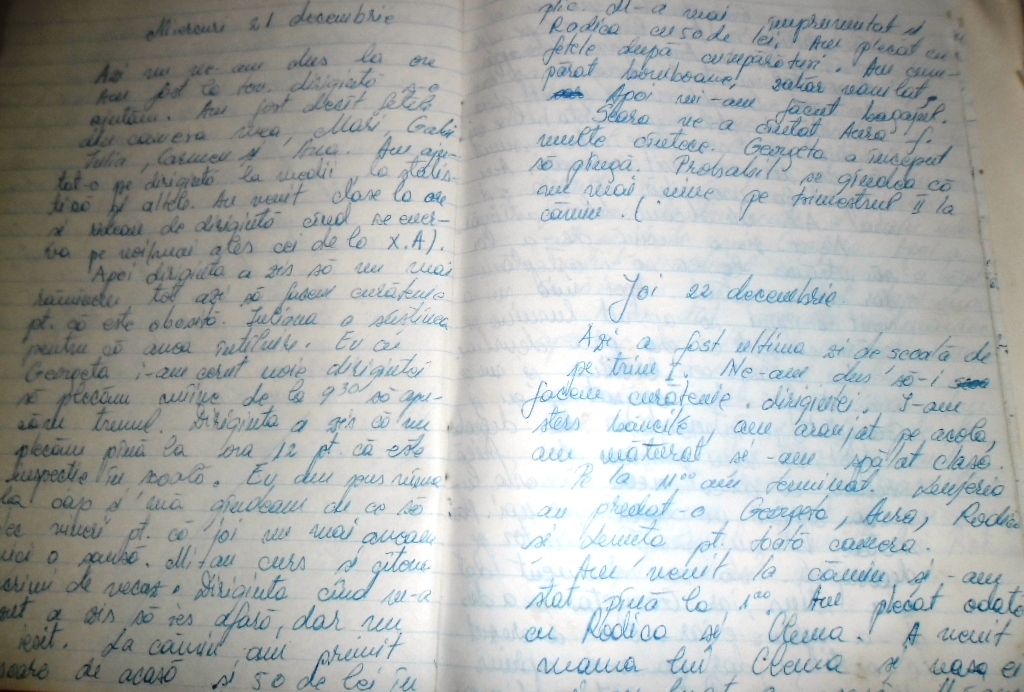 Miercuri 21 decembrie
Azi nu ne-am dus la ore
Am fost la tov. dirigintă s-o
ajutăm. Am fost decît fetele
din camera mea, Mari, Gabi
Iulia, Carmen și Ana. Am aju-
tat-o pe dirigintă la medii, la statis-
tică și altele. Au venit clase la ore
și rîdeau de dirigintă cînd se ener-
va pe noi (mai ales cei de la X.A).
Apoi diriginta a zis să nu mai
rămînem tot azi să facem curățenie
pt. că este obosită. Iuliana a susținea
pentru că avea întîlnire. Eu cu
Georgeta i-am cerut voie dirigintei
să plecăm mîine de la 9³⁰ să apu-
căm trenul. Diriginta a zis că nu
plecăm pînă la ora 12 pt. că este
inspecție în școală. Eu am pus mîna
la cap și mă gîndeam de ce să
pt. că joi nu mai aveam
nici o șansă. Mi-au curs și cîteva
lacrimi de necaz. Diriginta cînd m-a
văzut a zis să ies afară, dar nu
ieșit. La cămin am primit
scrisoare de acasă și 50 de lei în
plic. M-a mai împrumutat și
Rodica cu 50 de lei. Am plecat cu
fetele după cumpărături. Am cum-
părat bomboane, zahăr vanilat.
Apoi mi-am făcut bagajul.
Seara ne-a cîntat Aura F.
multe cîntece. Georgeta a început
să plîngă. Probabil se gîndea că
nu mai vine pe trimestrul II la
cămin. (
Joi 22 decembrie
Azi a fost ultima zi de școală de
pe trim I. Ne-am dus să-i
facem curățenie dirigintei. I-am
șters băncile, am aranjat pe acolo,
am măturat și-am spălat clasa.
Pe la 11⁰⁰ am terminat. Lenjeria
au predat-o Georgeta, Aura, Rodica
și Lenuța pt. toată camera.
Am venit la cămin și-am
stat pînă la 1⁰⁰. Am plecat odată
cu Rodica și Clema. A venit
mama lui Clema și nașa ei